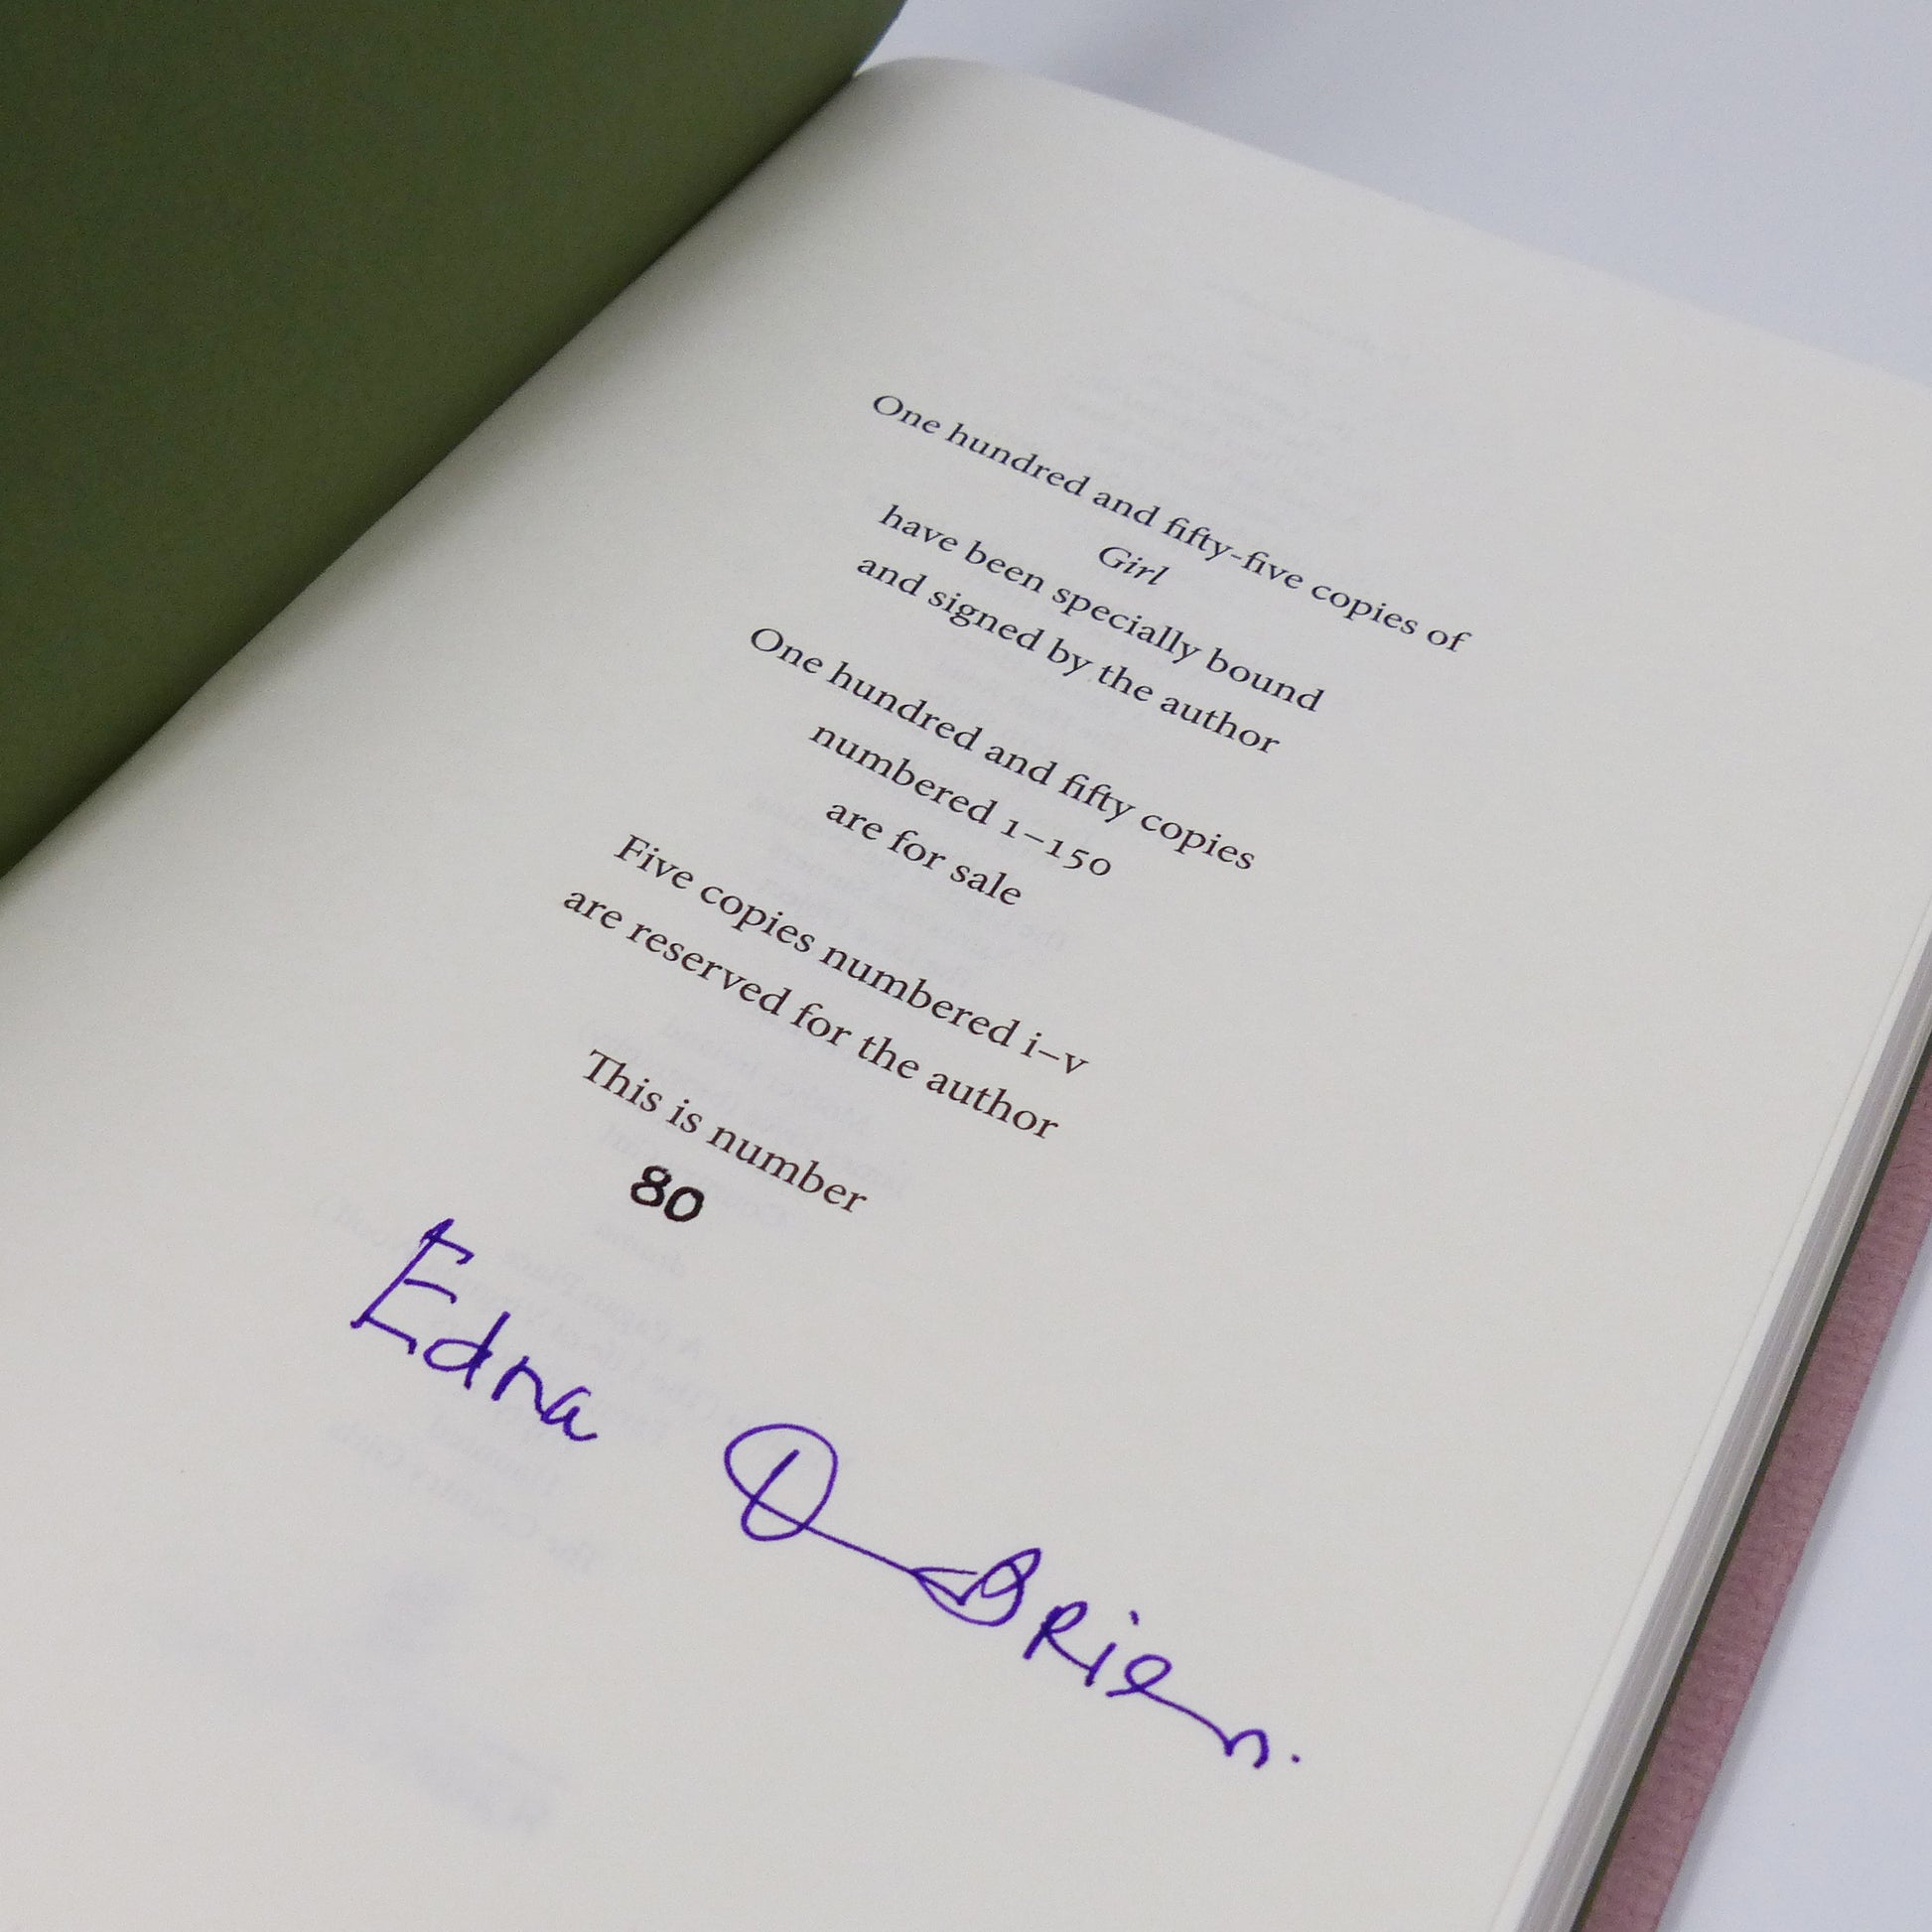 One hundred and fifty-five copies of
Girl
have been specially bound
and signed by the author
One hundred and fifty copies
numbered 1–150
are for sale
Five copies numbered i–v
are reserved for the author
This is number
80
Edna O'Brien.